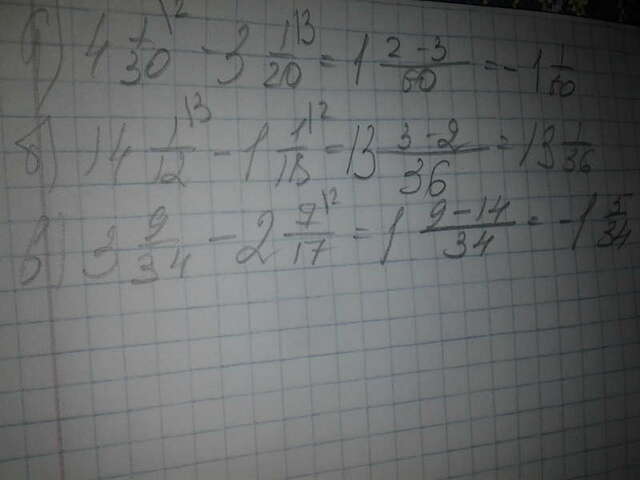 д) 4 1/30 |2 - 3 1/20 |3 = 1 2-3/60 = -1 1/60
б) 14 1/12 |3 - 1 1/18 |2 = 13 3-2/36 = 13 1/36
в) 3 9/34 - 2 7/17 |2 = 1 9-14/34 = -1 5/34